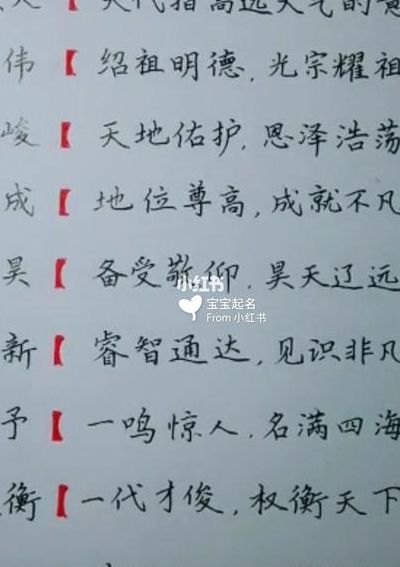 天代指高远天气的意
伟【 绍祖明德，光宗耀祖
峻【 天地佑护，恩泽浩荡
成【 地位尊高，成就不凡
昊【 备受敬仰，昊天辽远
小红书
宝宝起名
From 小红书
新【 睿智通达，见识非凡
予【 一鸣惊人，名满四海
衡【 一代才俊，权衡天下